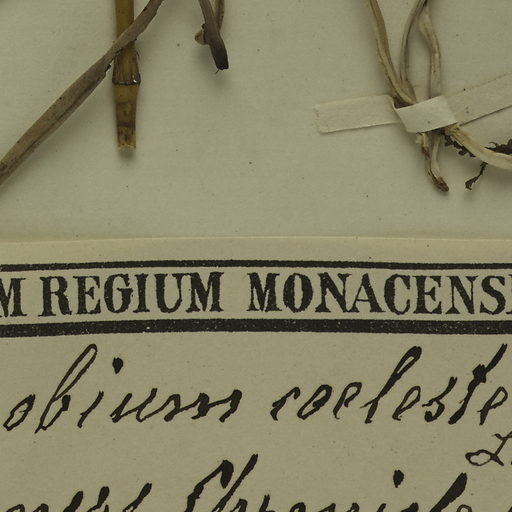 M REGIUM MONACENS
obium coeleste
Chronicle